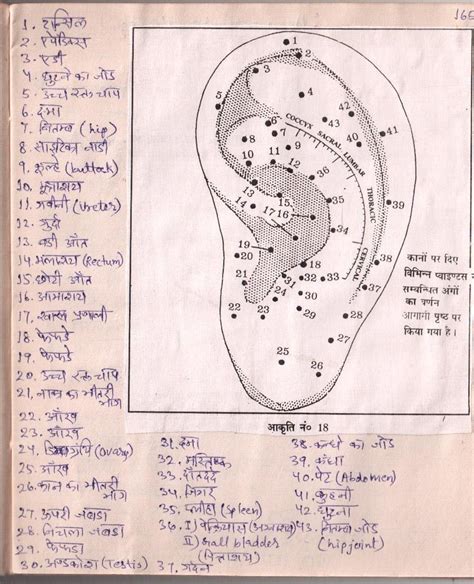 165
1. टान्सिल
2. एपेंडिक्स
3. एडी
4. घुटने का जोड
5. उच्च रक्त चाप
6. दमा
7. नितम्ब (hip)
8. साइटिका नाडी
9. कुल्हे (buttock)
10. मूत्राशय
11. गवीनी (Ureter)
12. गुर्दा
13. बडी आँत
14. मलाशय (Rectum)
15. छोटी आँत
16. आमाशय
17. श्वास प्रणाली
18. फेफडे
19. फेफडे
20. उच्च रक्त चाप
21. नाक का भीतरी भाग
22. आँख
23. आँख
24. डिम्बग्रंथि (Ovary)
25. आँख
26. कान का भीतरी भाग
27. ऊपरी जबाडा
28. निचला जबाडा
29. फेफडा
30. अण्डकोश (Testis)
COCCYX SACRAL LUMBAR THORACIC CERVICAL
1
2
3
4
5
6
7
8
9
10
11
12
13
14
15
16
17
18
19
20
21
22
23
24
25
26
27
28
29
30
31
32
33
34
35
36
37
38
39
40
41
42
43
कानों पर दिए
विभिन्न प्वाइण्टस
सम्बन्धित अंगों
का वर्णन
आगामी पृष्ठ पर
किया गया है।
आकृति नं० 18
31. दमा
32. मस्तिष्क
33. दाँतदर्द
34. जिगर
35. प्लीहा (Spleen)
36. I) पेंक्रियास (अग्नाशय)
II) Gall bladder
(पित्ताशय)
37. गर्दन
38. कन्धे का जोड
39. कंधा
40. पेट (Abdomen)
41. कुहनी
42. घुटना
43. नितम्ब जोड
(hip joint)